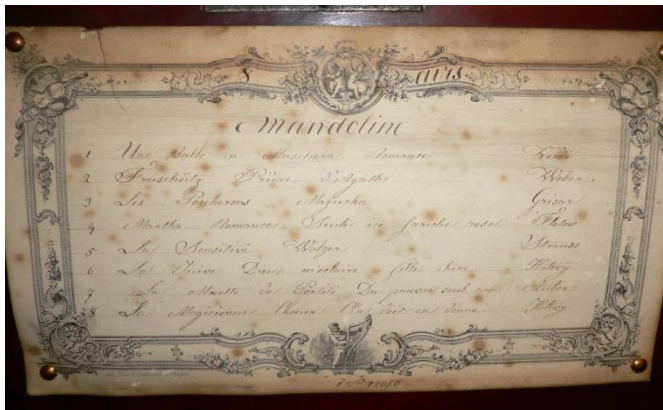 8 AIRS
Mandoline
1 Un Ballo in Maschera Romance Verdi
2 Freischütz Prière d'Agathe Weber
3 Les Porcherons Mazurka Grisar
4 Martha Romance Seule ici fraiche rose Flotow
5 La Sensitive Walzer Strauss
6 La Juive Dieu m'éclaire fille chère Halevy
7 La Muette de Portici Du pauvre seul ami Auber
8 La Magicienne Choeur Halevy